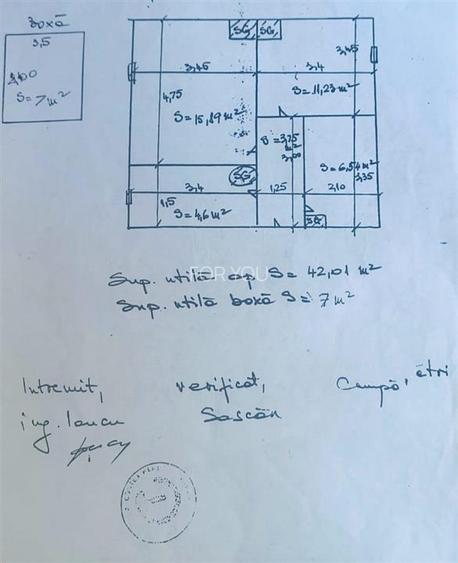 boxă
3,5
2,00
S = 7 m²
SG SG
3,45
3,45 3,4
S = 11,23 m²
4,75
S = 15,19 m²
S = 3,75 m²
3,00
S = 6,54 m²
3,35
SG
3,4 1,25 2,10
1,5
S = 4,6 m²
SG
Sup. utilă ap S = 42,01 m²
FOR YOU
Sup. utilă boxă S = 7 m²
Intremit, verificat,
ing. Iancu